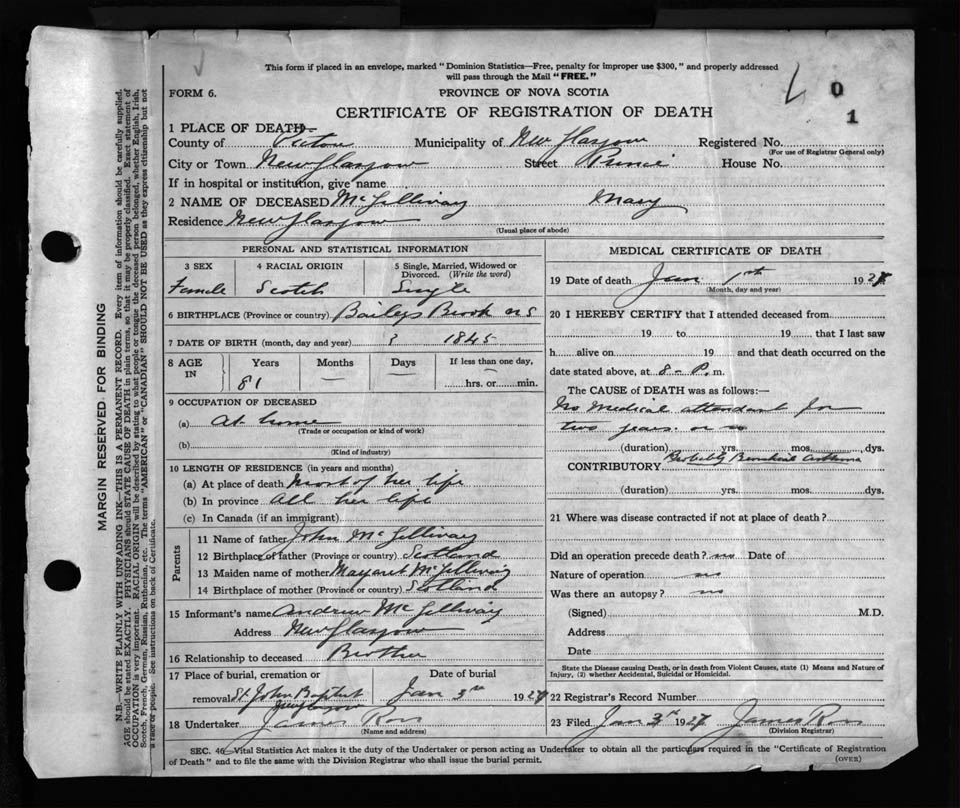 This form if placed in an envelope, marked "Dominion Statistics—Free, penalty for improper use $300," and properly addressed
will pass through the Mail "FREE."
FORM 6.
PROVINCE OF NOVA SCOTIA
0
1
CERTIFICATE OF REGISTRATION OF DEATH
1 PLACE OF DEATH—
County of Pictou Municipality of New Glasgow Registered No.
(For use of Registrar General only)
City or Town New Glasgow Street House No.
If in hospital or institution, give name
2 NAME OF DECEASED McGillivary Mary
Residence New Glasgow
(Usual place of abode)
PERSONAL AND STATISTICAL INFORMATION
3 SEX 4 RACIAL ORIGIN 5 Single, Married, Widowed or
Divorced. (Write the word)
Female Scotch Single
6 BIRTHPLACE (Province or country) Baileys Brook N S
7 DATE OF BIRTH (month, day and year) ? 1845
8 AGE IN Years Months Days If less than one day,
81 — — hrs. or min.
9 OCCUPATION OF DECEASED
(a) At home
(Trade or occupation or kind of work)
(b)
(Kind of industry)
10 LENGTH OF RESIDENCE (in years and months)
(a) At place of death Most of her life
(b) In province All her life
(c) In Canada (if an immigrant)
Parents
11 Name of father John McGillivary
12 Birthplace of father (Province or country) Scotland
13 Maiden name of mother Margaret McGillivary
14 Birthplace of mother (Province or country) Scotland
15 Informant's name Andrew McGillivary
Address New Glasgow
16 Relationship to deceased Brother
17 Place of burial, cremation or Date of burial
removal St John Baptist Jan 3rd 1927
New Glasgow
18 Undertaker James Ross
(Name and address)
MEDICAL CERTIFICATE OF DEATH
19 Date of death Jan 1st 1927
(Month, day and year)
20 I HEREBY CERTIFY that I attended deceased from
19 to 19 , that I last saw
h alive on 19 and that death occurred on the
date stated above, at 8 - P. m.
The CAUSE of DEATH was as follows:—
No Medical attendant for
two years or so
(duration) yrs. mos. dys.
CONTRIBUTORY Probably Bronchial Asthma
(duration) yrs. mos. dys.
21 Where was disease contracted if not at place of death?
Did an operation precede death? no Date of
Nature of operation no
Was there an autopsy? no
(Signed) M.D.
Address
Date
State the Disease causing Death, or in death from Violent Causes, state (1) Means and Nature of
Injury, (2) whether Accidental, Suicidal or Homicidal.
22 Registrar's Record Number
23 Filed Jan 3rd 1927 James Ross
(Division Registrar)
SEC. 46—Vital Statistics Act makes it the duty of the Undertaker or person acting as Undertaker to obtain all the particulars required in the "Certificate of Registration
of Death" and to file the same with the Division Registrar who shall issue the burial permit.
(OVER)
MARGIN RESERVED FOR BINDING
N.B.—WRITE PLAINLY, WITH UNFADING INK—THIS IS A PERMANENT RECORD. Every item of information should be carefully supplied.
AGE should be stated EXACTLY. PHYSICIANS should STATE CAUSE OF DEATH in plain terms, so that it may be properly classified. Exact statement of
OCCUPATION is very important. RACIAL ORIGIN will be described by stating to what people or tongue the deceased person belonged, whether English, Irish,
Scotch, French, German, Russian, Ruthenian, etc. The terms "AMERICAN" or "CANADIAN" SHOULD NOT BE USED as they express citizenship but not
a race or people. See instructions on back of Certificate.